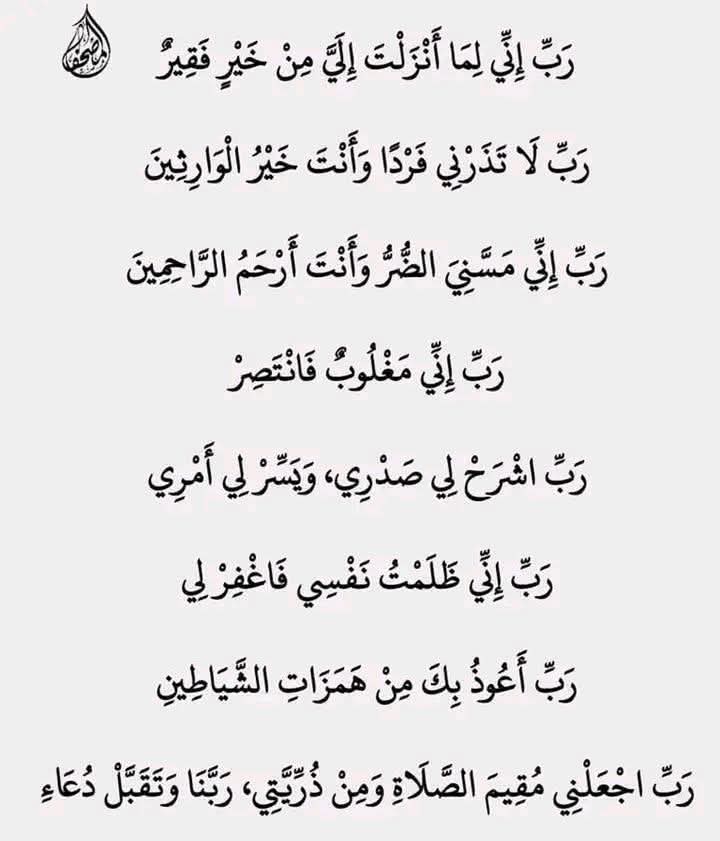 المصحف
رَبِّ إِنِّي لِمَا أَنْزَلْتَ إِلَيَّ مِنْ خَيْرٍ فَقِيرٌ
رَبِّ لَا تَذَرْنِي فَرْدًا وَأَنْتَ خَيْرُ الْوَارِثِينَ
رَبِّ إِنِّي مَسَّنِيَ الضُّرُّ وَأَنْتَ أَرْحَمُ الرَّاحِمِينَ
رَبِّ إِنِّي مَغْلُوبٌ فَانْتَصِرْ
رَبِّ اشْرَحْ لِي صَدْرِي، وَيَسِّرْ لِي أَمْرِي
رَبِّ إِنِّي ظَلَمْتُ نَفْسِي فَاغْفِرْ لِي
رَبِّ أَعُوذُ بِكَ مِنْ هَمَزَاتِ الشَّيَاطِينِ
رَبِّ اجْعَلْنِي مُقِيمَ الصَّلَاةِ وَمِنْ ذُرِّيَّتِي، رَبَّنَا وَتَقَبَّلْ دُعَاءِ